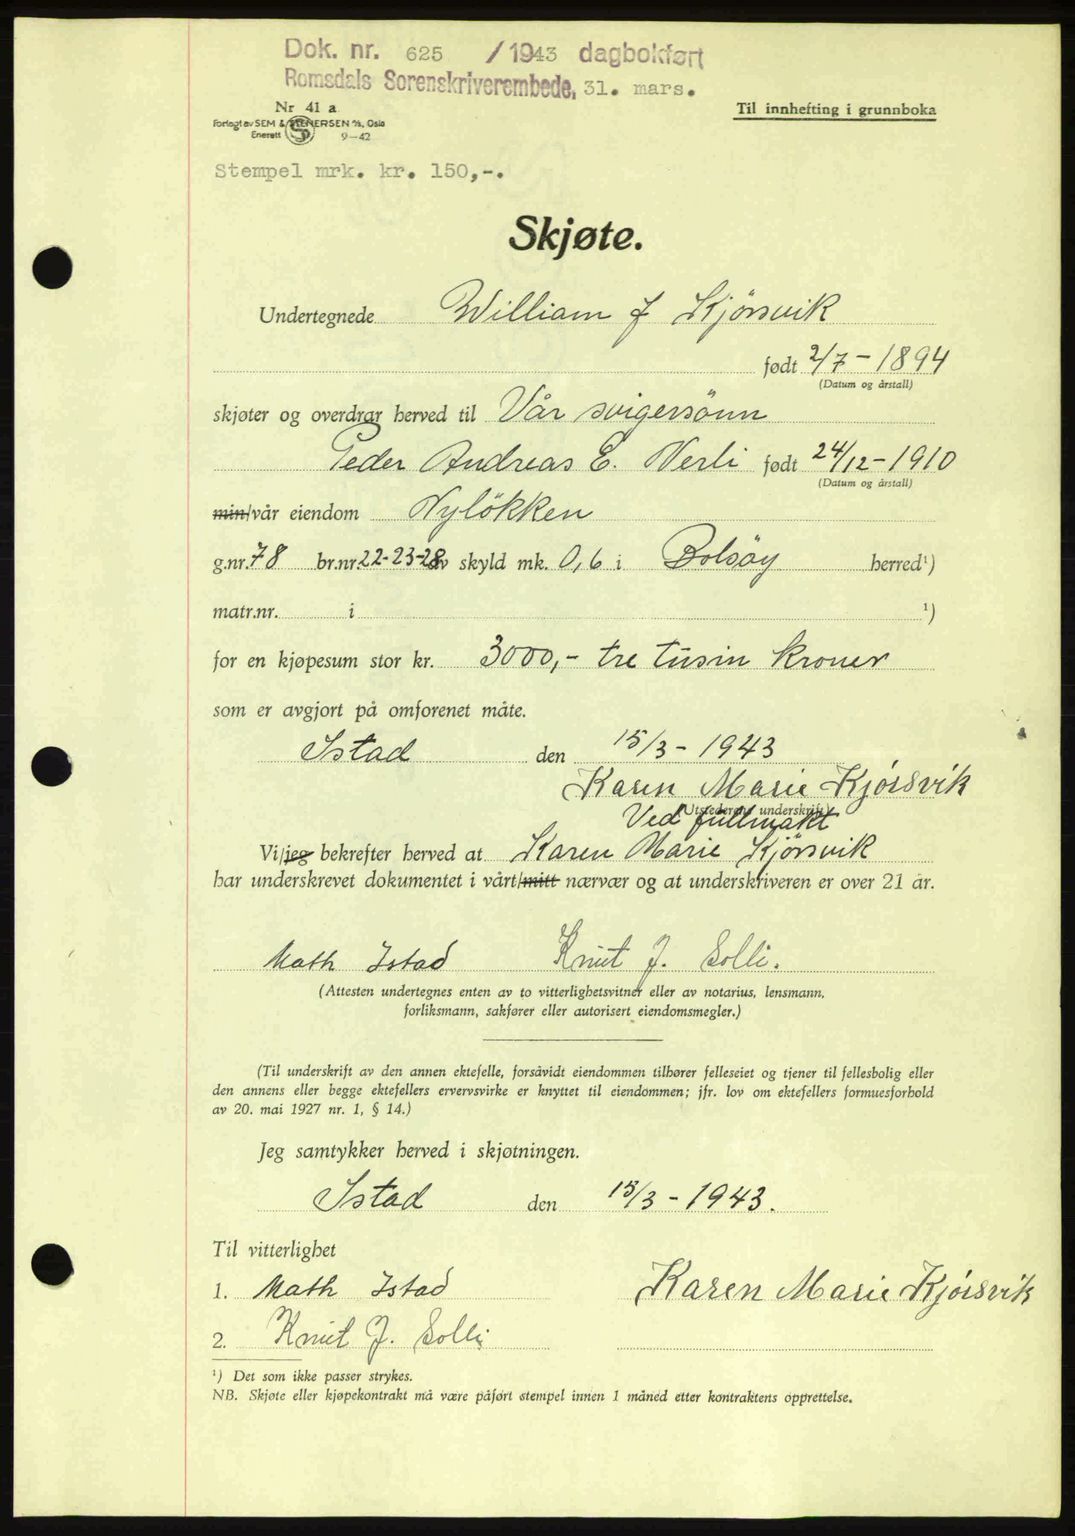 Dok. nr. 625 /1943 dagbokført
Romsdals Sorenskriverembede, 31. mars.
Nr 41 a
Til innhefting i grunnboka
Forlagt av SEM & STENERSEN A/S, Oslo
Enerett 9-42
Stempel mrk. kr. 150,-.
Skjøte.
Undertegnede William J Kjörsvik
født 2/7 - 1894
(Datum og årstall)
skjøter og overdrar herved til Vår svigersönn
Peder Andreas E. Nerli født 24/12 - 1910
(Datum og årstall)
min/vår eiendom Nylökken
g.nr. 78 br.nr. 22-23-28 av skyld mk. 0,6 i Bolsöy herred¹)
matr.nr. i ¹)
for en kjøpesum stor kr. 3000,- tre tusin kroner
som er avgjort på omforenet måte.
Istad den 15/3 - 1943
Karen Marie Kjörsvik
(Utstederens underskrift)
Ved fullmakt
Vi/jeg bekrefter herved at Karen Marie Kjörsvik
har underskrevet dokumentet i vårt/mitt nærvær og at underskriveren er over 21 år.
Math Istad Knut J. Solli.
(Attesten undertegnes enten av to vitterlighetsvitner eller av notarius, lensmann,
forliksmann, sakfører eller autorisert eiendomsmegler.)
(Til underskrift av den annen ektefelle, forsåvidt eiendommen tilhører felleseiet og tjener til fellesbolig eller
den annens eller begge ektefellers ervervsvirke er knyttet til eiendommen; jfr. lov om ektefellers formuesforhold
av 20. mai 1927 nr. 1, § 14.)
Jeg samtykker herved i skjøtningen.
Istad den 15/3 - 1943.
Til vitterlighet
1. Math Istad Karen Marie Kjörsvik
2. Knut J. Solli
¹) Det som ikke passer strykes.
NB. Skjøte eller kjøpekontrakt må være påført stempel innen 1 måned etter kontraktens opprettelse.